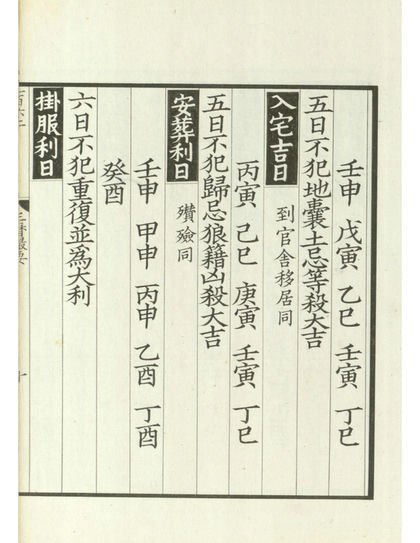 壬申　戊寅　乙巳　壬寅　丁巳
五日不犯地囊土忌等殺大吉
入宅吉日　到官舍移居同
丙寅　己巳　庚寅　壬寅　丁巳
五日不犯歸忌狼籍凶殺大吉
安葬利日　欑殮同
壬申　甲申　丙申　乙酉　丁酉
癸酉
六日不犯重復並為大利
掛服利日
三曆撮要
十